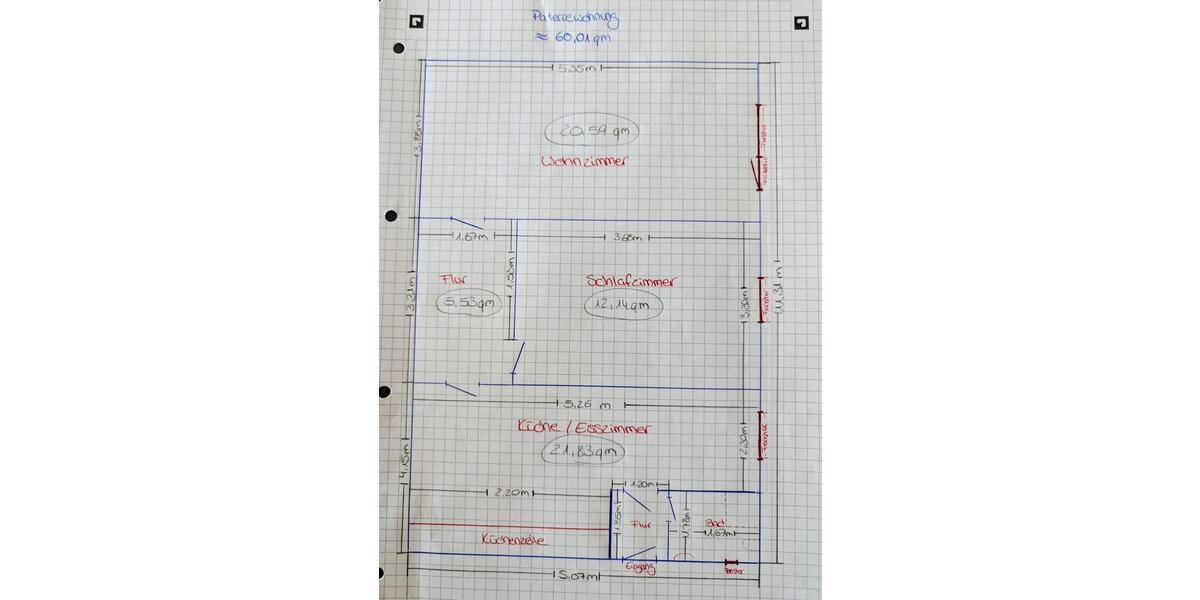 Paterrewohnung
≈ 60,01 qm
5,35m
3,85m
20,59 qm
Wohnzimmer
Fenster
1,67m
3,68m
Flur
5,53qm
1,53m
Schlafzimmer
12,14qm
3,31m
3,30m
Fenster
11,31m
5,26 m
Küche / Esszimmer
21,83qm
4,15m
2,30m
Fenster
2,20m
1,20m
Küchenzeile
1,85m
Flur
1,78m
Bad
1,67m
Eingang
Fenster
5,07m